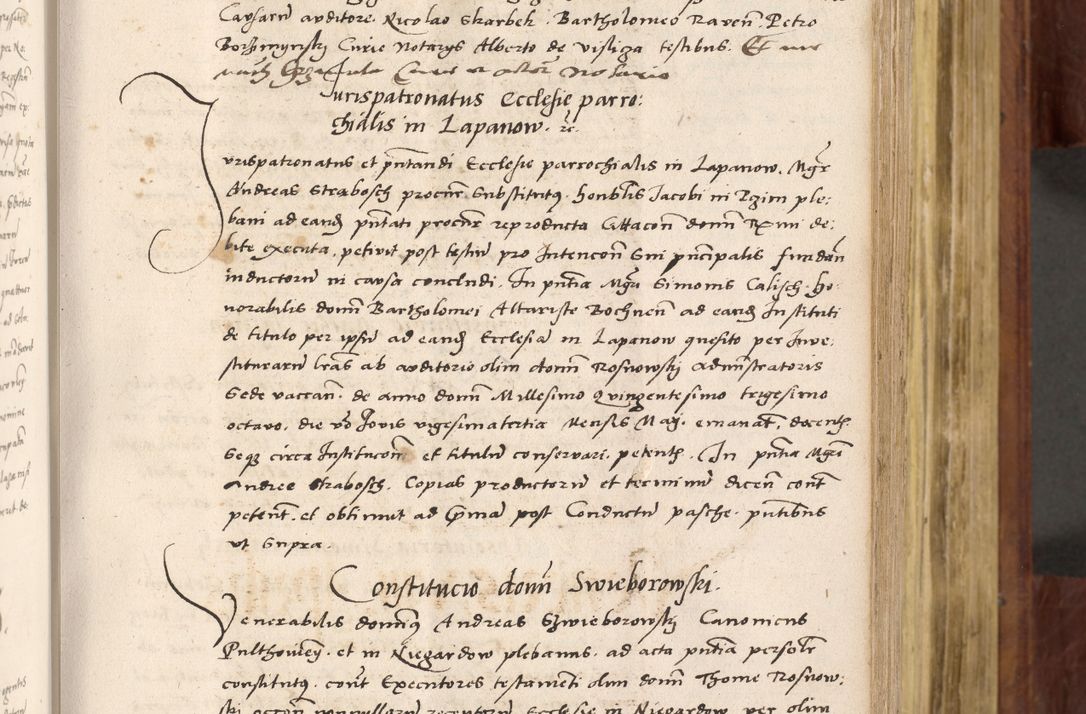 Causarum auditore. Nicolao Skarbek. Bartholomeo Raven. Petro
Borzimynski Curie Notarys Alberto de Visliga testibus. Et me
Curie et actor Notario
Jurispatronatus Ecclesie parro:
chialis in Lapanow. rc.
Jurispatronatus et pntandi Ecclesie parrochialis in Lapanow. Mgr
Andreas Strabosch procur Substitutq. honblis Jacobi in Rzim ple:
bani ad eand pntati procur reproducta Cittacon domin Rxmi de:
bite executa, petivit post testiu pro Intencon Sui pncipalis fundan
inductoru in causa concludi. In pntia Mgri Simonis Calisch. ho:
norabilis domni Bartholomei Altariste Bochnen ad eand Instituti
de titulo per ipsu ad eand Ecclesia in Lapanow quesito per Inve:
stiturarum lras ab auditorio olim domni Rosnowski administratoris
Sede vaccan. de anno domni Millesimo Quingentesimo trigesimo
octavo, die vo Jovis vigesimatertia Mensis Maij. emanat, docent.
Seqz circa Institucom et titulu conservari petent. In pntia Mgri
Andree Strabosch. Copias productoru et terminu dicen cont
petent. et obtinuit ad Prima post Conductu pasche. pntibus
ut Supra.
Constitucio domni Swieborowski.
Venerabilis dominq Andreas Szwieborowski Canonicus
Pulthovien. et in Niegardow plebanus. ad acta pntia personlr
constitutq. cont Executores testamenti olim domni Thome Rosnow:
ski occon nonnullarum receptaru Ecclesie in Niegardow per olim